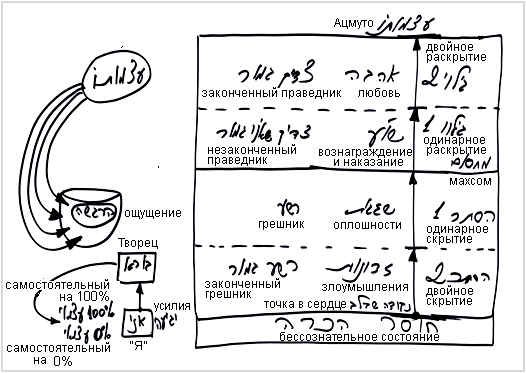 Ацмуто עצמותו
עצמותו
двойное
раскрытие
גלוי 2
אהבה
любовь
צדיק גמור
законченный праведник
גלוי 1
одинарное
раскрытие
מחסום
вознаграждение
и наказание
незаконченный
праведник
махсом
הרגשה
ощущение
הסתר 1
одинарное
скрытие
שגגות
оплошности
רשע
грешник
הסתר 2
двойное
скрытие
זדונות
злоумышления
רשע גמור
законченный
грешник
точка в сердце נקודה שבלב
חוסר הכרה
бессознательное состояние
Творец
בורא
самостоятельный
на 100%
100% עצמאי
0% עצמאי
самостоятельный
на 0%
усилия
יגיעה
אני
"Я"